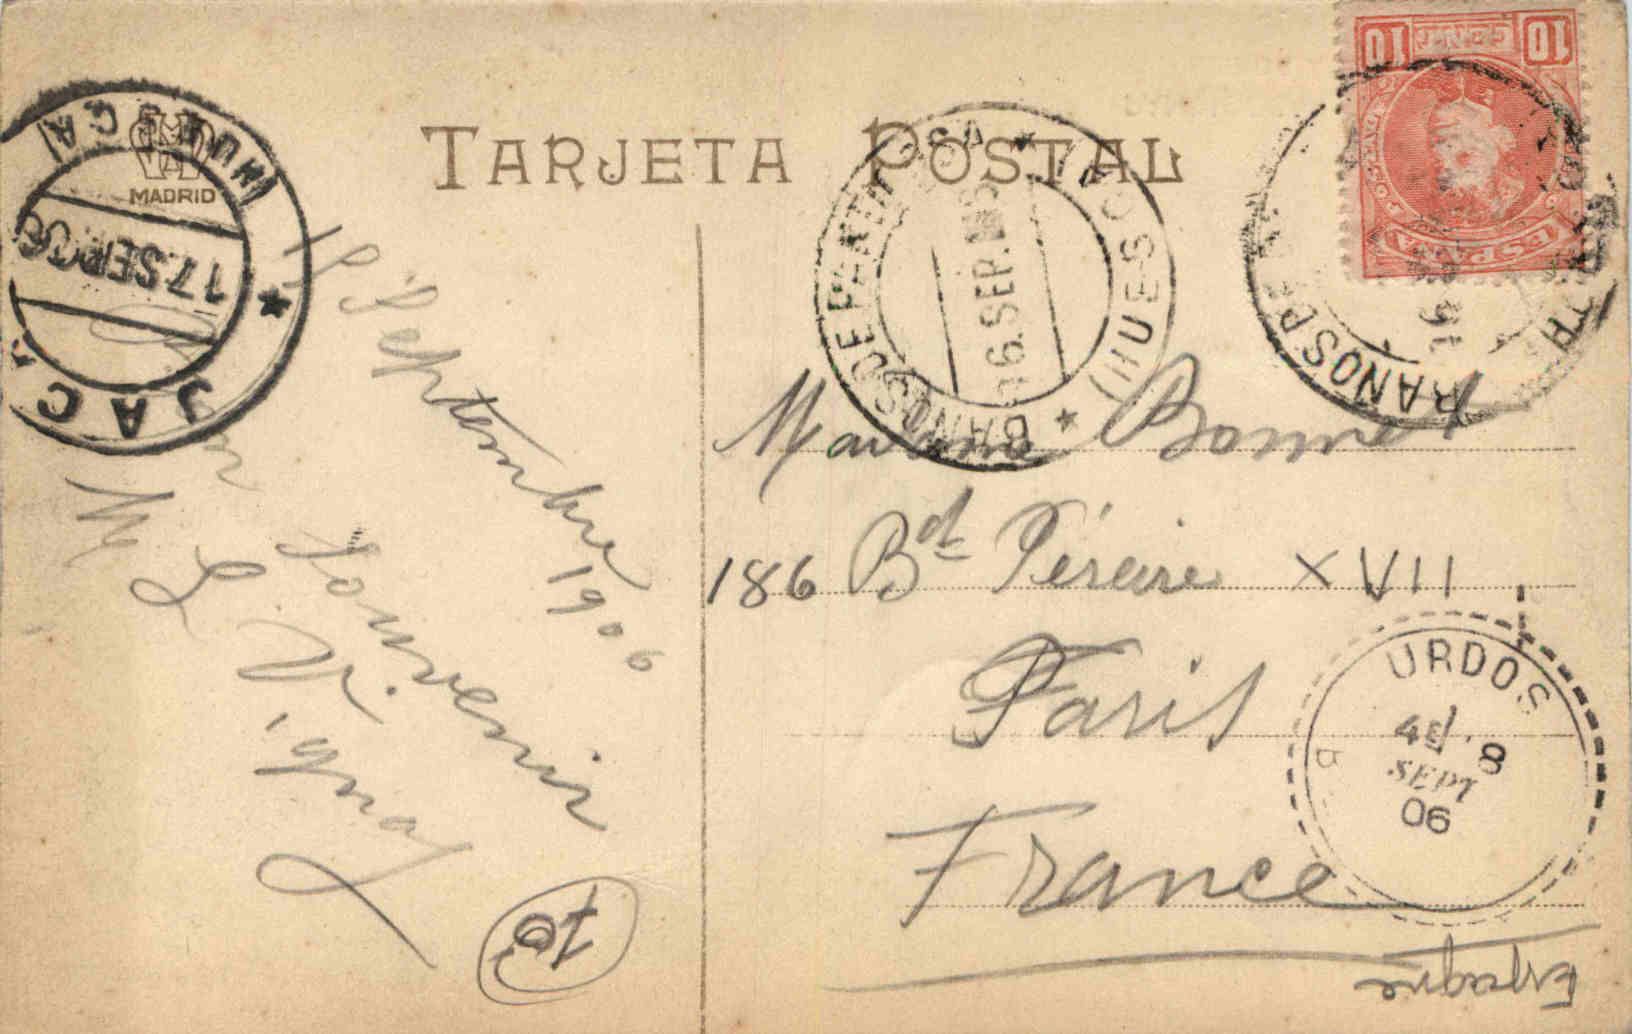 TARJETA POSTAL
MADRID
JACA
(HUESCA)
17.SEP.06
BAÑOS DE PANTICOSA
(HUESCA)
16.SEP.
10 CENT. 10
ESPAÑA
BAÑOS DE
16
Madame Bonnet
186 Bd Péreire XVII
Paris
France
Espagne
URDOS
8
SEPT
06
Septembre
1906
Souvenir
M L Vignal